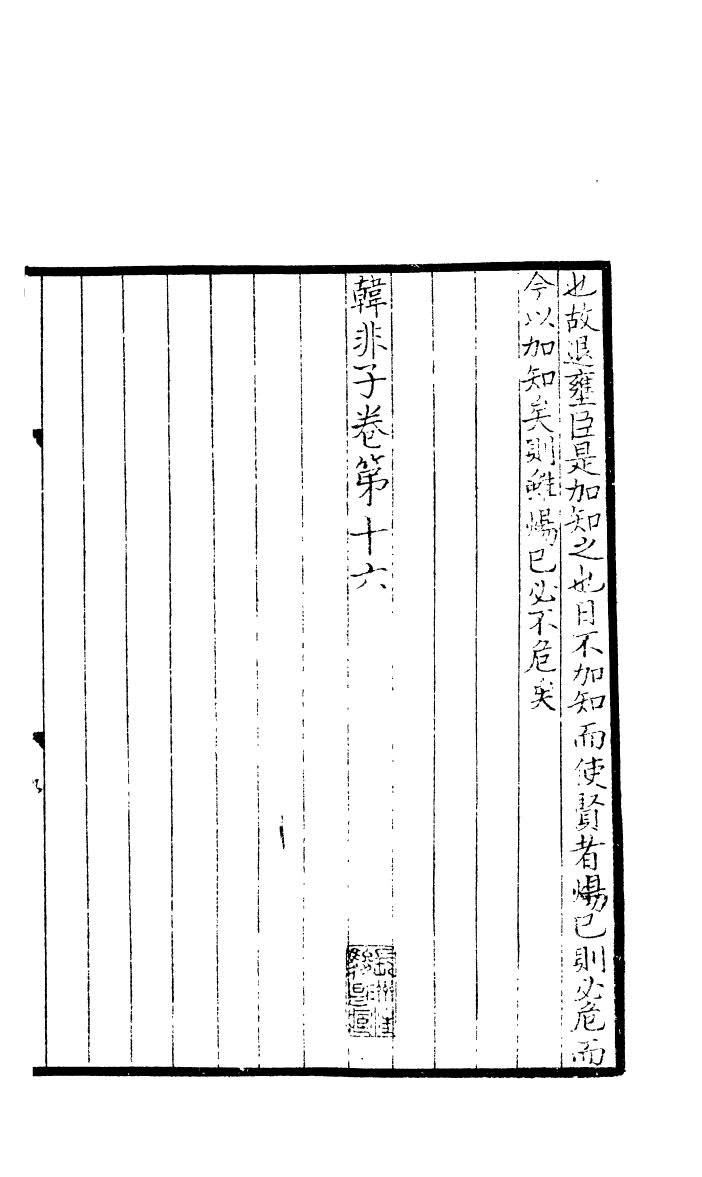 也故退壅臣是加知之也日不加知而使賢者煬已則必危而
今以加知矣則雖煬已必不危矣
韓非子卷第十六